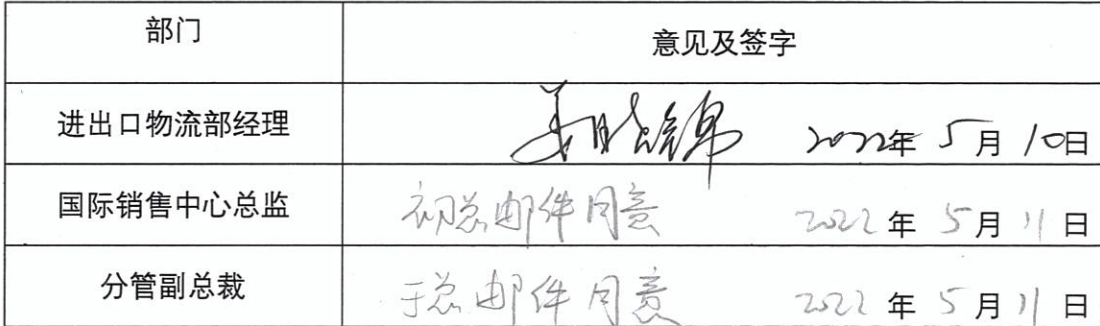 部门 意见及签字
进出口物流部经理 姜晓锦 2022年 5月 10日
国际销售中心总监 初总邮件同意 2022年 5月 11日
分管副总裁 于总邮件同意 2022年 5月 11日